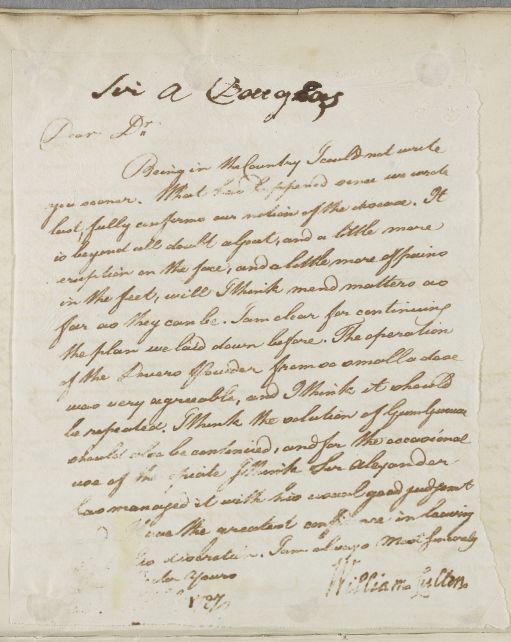 Sir A Douglas
Dear Dr.
Being in the Country I could not write
you sooner. What has happened since we wrote
last, fully confirms our notion of the disease. It
is beyond all doubt a Gout, and a little more
eruption on the face, and a little more of pains
in the feet, will I think mend matters as
far as they can be. I am clear for continuing
the plan we laid down before. The operation
of the Dovers Powder from so small a dose
was very agreeable, and I think it should
be repeated. I think the solution of Gum Guaiac
should also be continued, and for the occasional
use of the opiate I think Sir Alexander
has managed it with his usual good judgmt
have the greatest confidence in leaving
his discretion. I am always Most sincerely
Yours
William Cullen
27